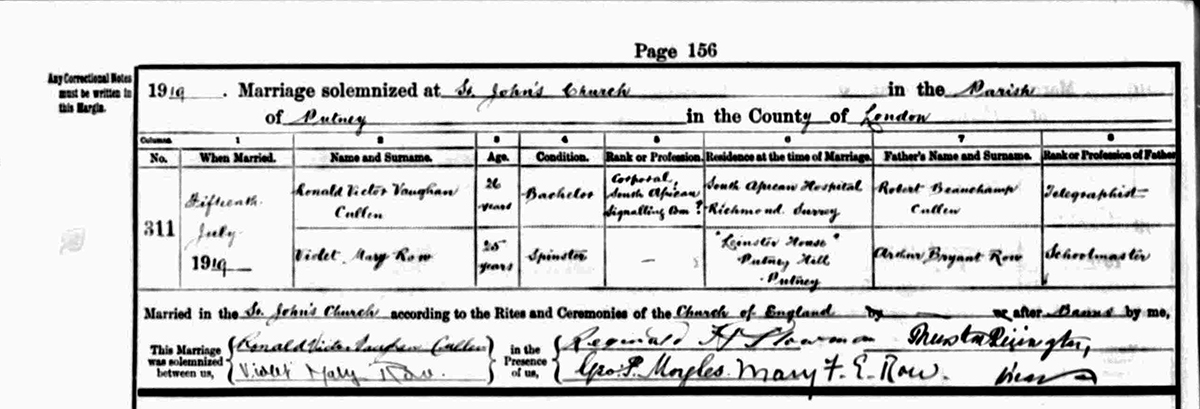 Page 156
Any Correctional Notes
must be written in
this Margin.
1919. Marriage solemnized at St. John's Church in the Parish
of Putney in the County of London
Columns. 1 2 3 4 5 6 7 8
No. When Married. Name and Surname. Age. Condition. Rank or Profession. Residence at the time of Marriage. Father's Name and Surname. Rank or Profession of Father
311
Fifteenth
July
1919
Ronald Victor Vaughan
Cullen
26
years
Bachelor
Corporal,
South African
Signalling
South African Hospital
Richmond Surrey
Robert Beauchamp
Cullen
Telegraphist
Violet Mary Row
25
years
Spinster
—
"Leinster House"
Putney Hill
Putney
Arthur Bryant Row
Schoolmaster
Married in the St. John's Church according to the Rites and Ceremonies of the Church of England by or after Banns by me,
This Marriage
was solemnized
between us,
Ronald Victor Vaughan Cullen
Violet Mary Row
in the
Presence
of us,
Reginald H
Geo. P. Mary F. E. Row.